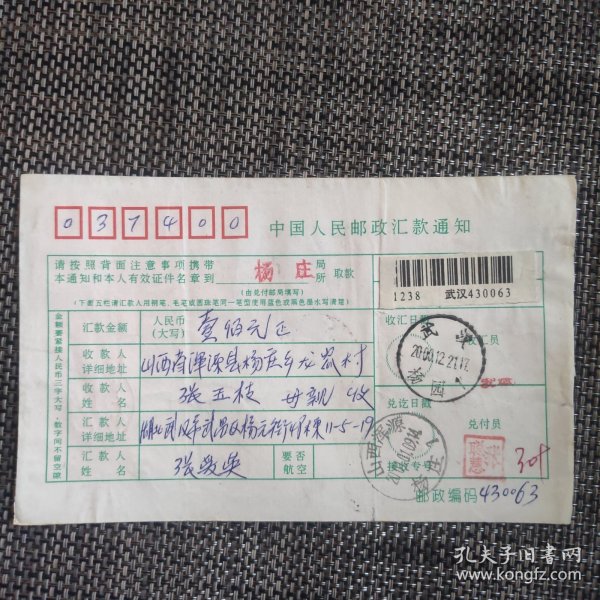 037400
中国人民邮政汇款通知
请按照背面注意事项携带
本通知和本人有效证件名章到
杨庄
局
所
取款
(由兑付邮局填写)
(下面五栏请汇款人用钢笔、毛笔或圆珠笔同一笔型使用蓝色或黑色墨水写清楚)
1238 武汉430063
金额要紧接人民币三字大写，数字间不留空隙
汇款金额
人民币
(大写)
壹佰元正
收汇日戳
收汇员
武汉
2000.12.21.17
收款人
详细地址
山西省浑源县杨庄乡龙咀村
收款人
姓名
张五枝 母亲 收
兑讫日戳
兑付员
汇款人
详细地址
湖北武汉市武昌区杨元街 11-5-19
汇款人
姓名
要否
航空
接收专号
山西浑源
杨庄
邮政编码430063
孔夫子旧书网
www.kongfz.com